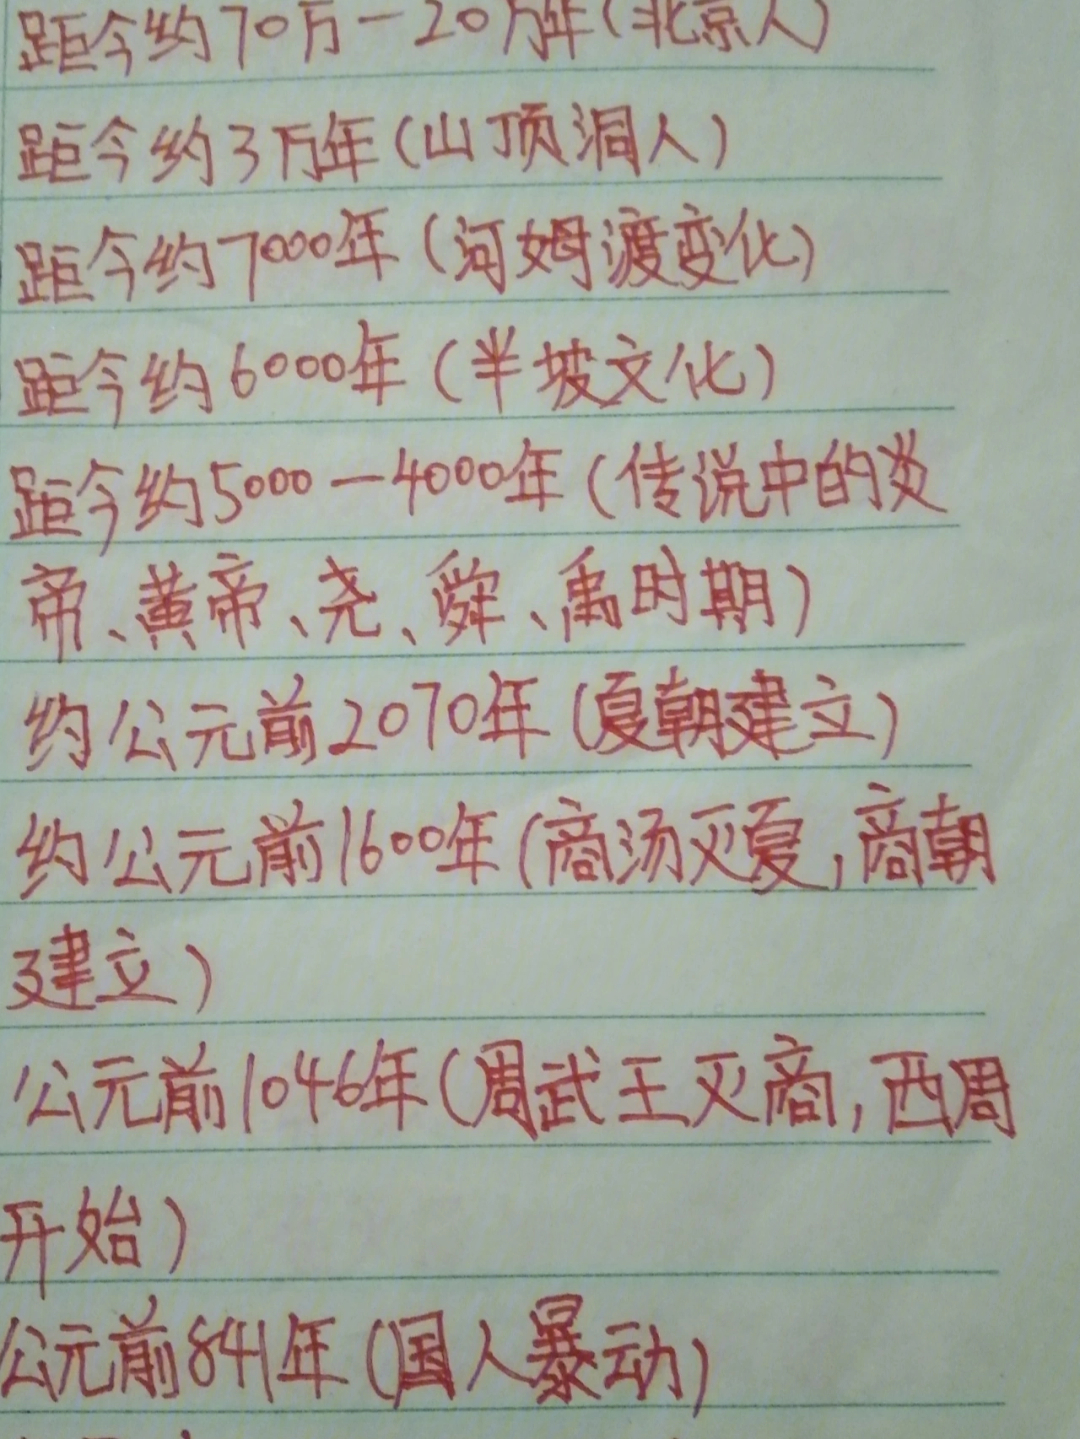 距今约70万一20万年(北京人)
距今约3万年(山顶洞人)
距今约7000年(河姆渡变化)
距今约6000年(半坡文化)
距今约5000一4000年(传说中的炎
帝、黄帝、尧、舜、禹时期)
约公元前2070年(夏朝建立)
约公元前1600年(商汤灭夏,商朝
建立)
公元前1046年(周武王灭商,西周
开始)
公元前841年(国人暴动)